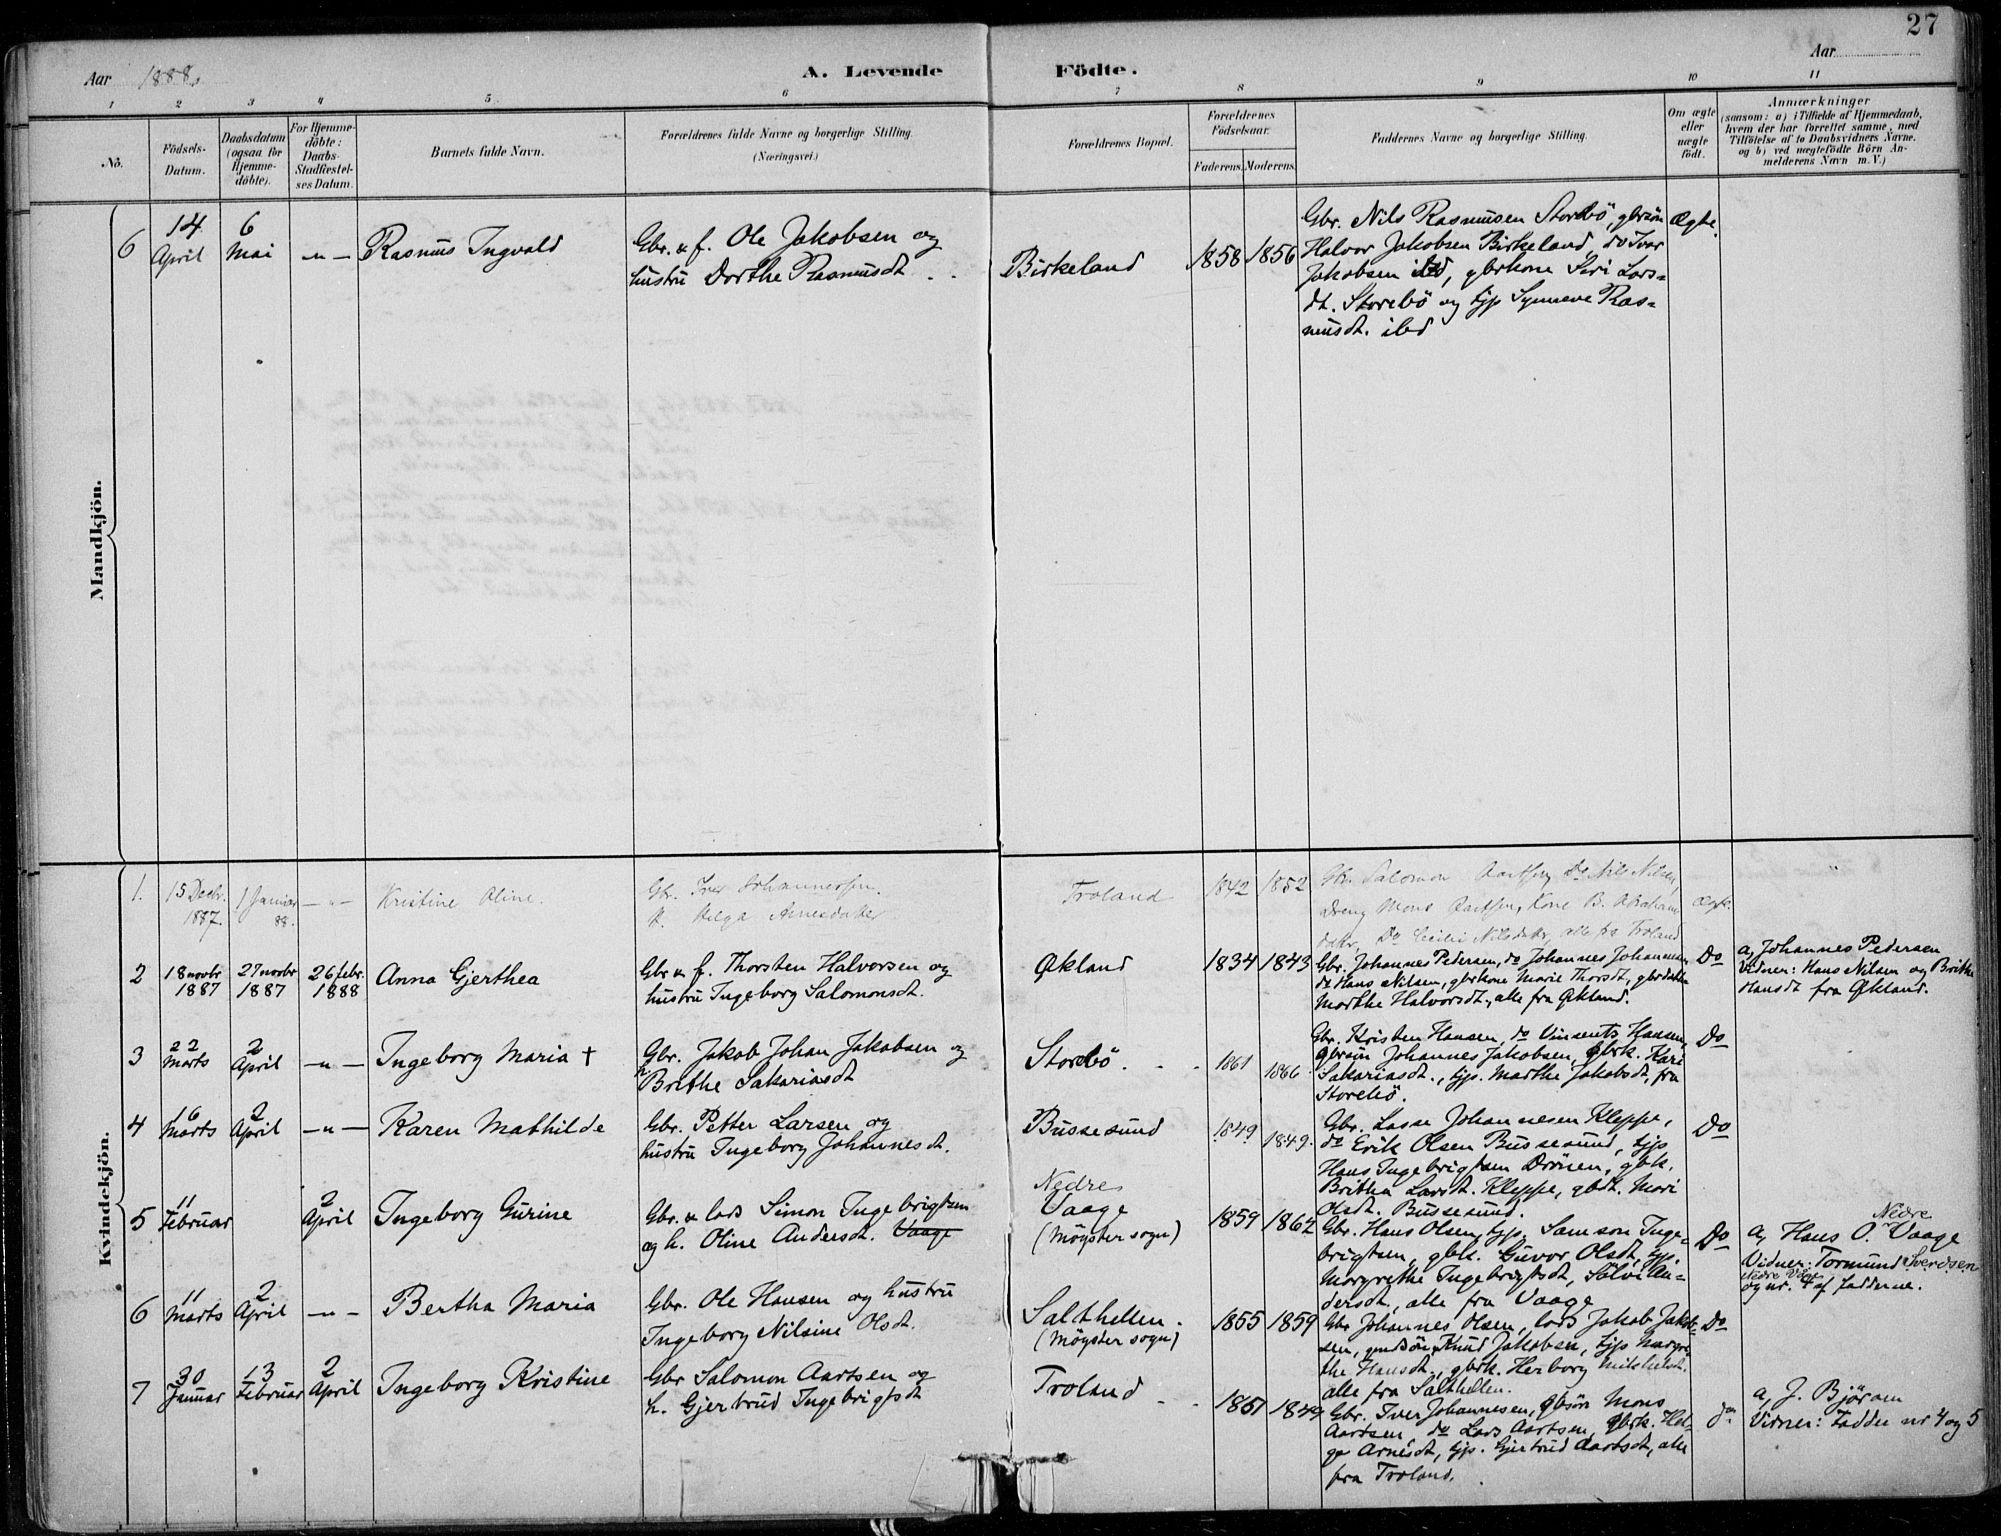 27
Aar 1888.
A. Levende Födte.
Aar
1 2 3 4 5 6 7 8 9 10 11
No.
Födsels-Datum.
Daabsdatum (ogsaa for Hjemme-döbte).
For Hjemme-döbte: Daabs-Stadfæstel-ses Datum.
Barnets fulde Navn.
Forældrenes fulde Navne og borgerlige Stilling.
(Næringsvei.)
Forældrenes Bopæl.
Forældrenes Födselsaar.
Faderens. Moderens.
Faddernes Navne og borgerlige Stilling.
Om ægte eller uægte födt.
Anmærkninger
(saasom: a) i Tilfælde af Hjemmedaab,
hvem der har forrettet samme, med
Tilföielse af to Daabsvidners Navne.
og b) ved uægtefödte Börn An-
melderens Navn m. V.)
Mandkjön.
6
14 April
6 Mai
-"-
Rasmus Ingvald
Gbr. & f. Ole Jakobsen og
hustru Dorthe Rasmusdt.
Birkeland
1858 1856
Gbr. Nils Rasmusen Storebö, gbrsön
Halvor Jakobsen Birkeland, do Ivar
Jakobsen ibd, gbrkone Siri Lars-
dt. Storebö og tjp Synneve Ras-
musdt. ibd
Ægte.
Kvindekjön.
1.
15 Decbr. 1887.
1 Januar 88.
-"-
Kristine Oline.
Gbr. Iver Johannessen.
H. Helga Arnesdatter
Troland
1842 1852
Gbr. Salomon Aartsen, Do Nils Nilsen,
Dreng Mons Aartsen, Kone B. Abraham
datter, Do Cecilie Nilsdattr, alle fra Troland
Ægte.
2
18 novbr 1887
27 novbr 1887
26 febr. 1888
Anna Gjerthea
Gbr & f. Thorsten Halvorsen og
hustru Ingeborg Salomonsdt.
Økland
1834 1843
Gbr. Johannes Pedersen, do Johannes Johannesen,
do Hans Nilsen, gbrkone Marie Thorsdt, gbrdatter
Marthe Halvorsdt, alle fra Økland.
Do
a, Johannes Pedersen
Vidner: Hans Nilsen og Brithe
Hansdt fra Økland.
3
22 Marts
2 April
-"-
Ingeborg Maria †
Gbr. Jakob Johan Jakobsen og
h Brithe Sakariasdt
Storebö.
1861 1866
Gbr. Kristen Hansen, do Vinsents Hansen,
gbrsön Johannes Jakobsen, gbrk. Kari
Sakariasdt., tjp. Marthe Jakobsdt, fra
Storebö.
Do
4
16 Marts
2 April
-"-
Karen Mathilde
Gbr. Petter Larsen og
hustru Ingeborg Johannesdt.
Bussesund
1849 1849.
Gbr. Lasse Johannesen Kleppe,
do Erik Olsen Bussesund, tjp
Hans Ingebrigtsen Drönen, gbk.
Britha Larsdt. Kleppe, gbdt. Mari
Olsdt. Bussesund.
Do
5
11 Februar
2 April
Ingeborg Gurine
Gbr. & lods Simon Ingebrigtsen
og h. Oline Andersdt. Vaage
Nedre
Vaage
(Mögster sogn)
1859 1862
Gbr. Hans Olsen, tjp. Samson Inge-
brigtsen, gbk. Guvor Olsdt, tjp.
Margrethe Ingebrigtsdt, Sölvi An-
dersdt, alle fra Vaage
Do
Nedre
a, Hans O. Vaage
Vidner: Tormund Sverdsen
Nedre Våge
og nr. 4 af fadderne.
6
11 Marts
2 April
-"-
Bertha Maria
Gbr. Ole Hansen og hustru
Ingeborg Nilsine Olsdt.
Salthellen.
(Mögster sogn)
1855 1859
Gbr Johannes Olsen, lods Jakob Jakob-
sen, Knud Jakobsen, tjp Margre-
the Hansdt, gbrk. Herborg Mikkelsdt.
alle fra Salthellen.
Do
7
30 Januar
13 Februar
2 April
Ingeborg Kristine
Gbr Salomon Aartsen og
h. Gjertrud Ingebrigtsdt
Troland
1851 1849
Gbr. Iver Johannesen, gbsön Mons
Aartsen, do Lars Aartsen, gbrk. Hel-
ga Arnesdt, tjp. Gjertrud Aartsdt, alle
fra Troland.
do
a, J. Björöen
Vidner: Fadder nr 4 og 5